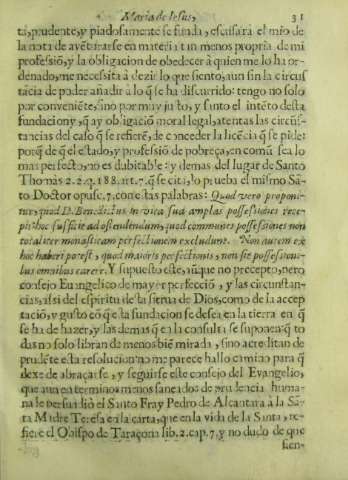 Maria de Iesus, 31
ta, prudente, y piadosamente se funda, escusarà el mio de
la nota de avẽturarse en materia tan menos propria de mi
professiõ, y la obligacion de obedecer à quien me lo ha or-
denado, me necessita à dezir lo que siento, aun sin la circũs
tãcia de poder añadir à lo q̃ se ha discurrido: tengo no solo
por conveniẽte, sino por muy justo, y santo el intẽto desta
fundacion y, q̃ ay obligaciõ moral legal, atentas las circũs-
tancias del caso q̃ se refiere, de conceder la licẽcia q̃ se pide:
porq̃ de q̃ el estado, y professiõ de pobreça, en comũ sea lo
mas perfecto, no es dubitable: y demas del lugar de Santo
Thomas 2. 2. q. 188. art. 7. q̃ se cita, lo prueba el mismo Sã-
to Doctor opusc. 7. con estas palabras: Quod vero proponi-
tur, quod D. Benedictus in vita sua amplas possessiones rece-
pit hoc sufficit ad ostendendum, quod communes possessiones non
totaliter monasticam perfectionem excludunt. Non autem ex
hoc haberi potest, quod maioris perfectionis, non sit possessioni-
bus omnibus carere. Y supuesto este, aũque no precepto, pero
consejo Euangelico de mayor perfecciõ, y las circunstan-
cias, assi del espiritu de la sierua de Dios, como de la accep
taciõ, y gusto cõ q̃ la fundacion se desea en la tierra en q̃
se ha de hazer, y las demas q̃ en la consulta se suponen q̃ to
das no solo libran de menos biẽ mirada, sino acreditan de
prudẽte esta resolucion no me parece hallo camino para q̃
dexe de abraçarse, y seguirse este consejo del Evangelio,
que aun en terminos menos saneados de prudencia huma-
na le persuadiò el Santo Fray Pedro de Alcantara à la Sã-
ta Madre Teresa en la carta, que en la vida de la Santa, re-
fiere el Obispo de Taraçona lib. 2. cap. 7, y no dudo de que
sien-